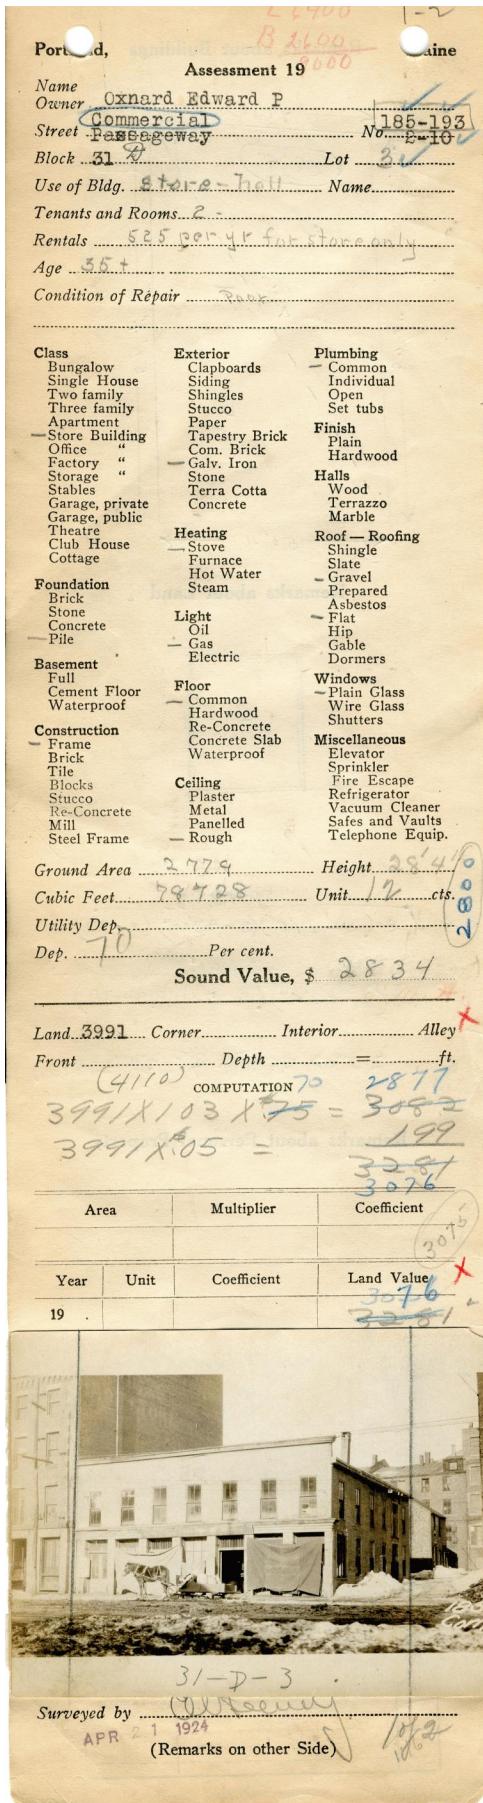 L 6400 1-2
B 2600
8000
Portland, Maine
Assessment 19
Name
Owner Oxnard Edward P
Commercial 185-193
Street Passageway No. 2-10
Block 31 D Lot 3
Use of Bldg. store - hall Name
Tenants and Rooms 2 -
Rentals 525 per yr for store only
Age 35 +
Condition of Repair Poor
Class
Bungalow
Single House
Two family
Three family
Apartment
Store Building
Office "
Factory "
Storage "
Stables
Garage, private
Garage, public
Theatre
Club House
Cottage
Foundation
Brick
Stone
Concrete
Pile
Basement
Full
Cement Floor
Waterproof
Construction
Frame
Brick
Tile
Blocks
Stucco
Re-Concrete
Mill
Steel Frame
Exterior
Clapboards
Siding
Shingles
Stucco
Paper
Tapestry Brick
Com. Brick
Galv. Iron
Stone
Terra Cotta
Concrete
Heating
Stove
Furnace
Hot Water
Steam
Light
Oil
Gas
Electric
Floor
Common
Hardwood
Re-Concrete
Concrete Slab
Waterproof
Ceiling
Plaster
Metal
Panelled
Rough
Plumbing
Common
Individual
Open
Set tubs
Finish
Plain
Hardwood
Halls
Wood
Terrazzo
Marble
Roof — Roofing
Shingle
Slate
Gravel
Prepared
Asbestos
Flat
Hip
Gable
Dormers
Windows
Plain Glass
Wire Glass
Shutters
Miscellaneous
Elevator
Sprinkler
Fire Escape
Refrigerator
Vacuum Cleaner
Safes and Vaults
Telephone Equip.
Ground Area 2779 Height 28'4"
Cubic Feet 78728 Unit 12 cts.
2800
Utility Dep.
Dep. 70 Per cent.
Sound Value, $ 2834
Land 3991 Corner Interior Alley X
Front Depth = ft.
(4110) COMPUTATION 70 2877
3991 X 103 X $.75 = 3082
3991 X $.05 = 199
3281
3076
Area Multiplier Coefficient
3075
Year Unit Coefficient Land Value X
3076
19 3281
31-D-3
Surveyed by
APR 21 1924
(Remarks on other Side)
1 of 2